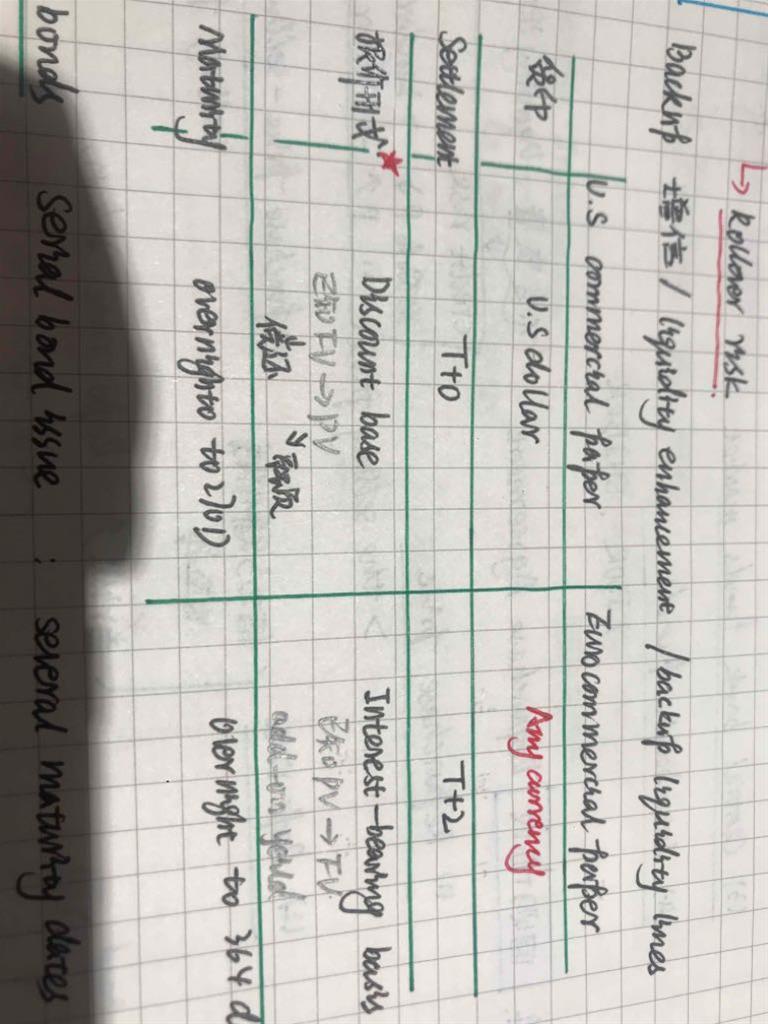 ↳ Rollover risk
Backup 增信 / liquidity enhancement / backup liquidity lines
U.S commercial paper Eurocommercial paper
货币 U.S dollar Any currency
Settlement T+0 T+2
报价形式 ★ Discount base Interest-bearing basis
已知FV→PV 已知PV→FV
add-on yield
Maturity overnight to 270D overnight to 364d
bonds Serial bond issue : several maturity dates